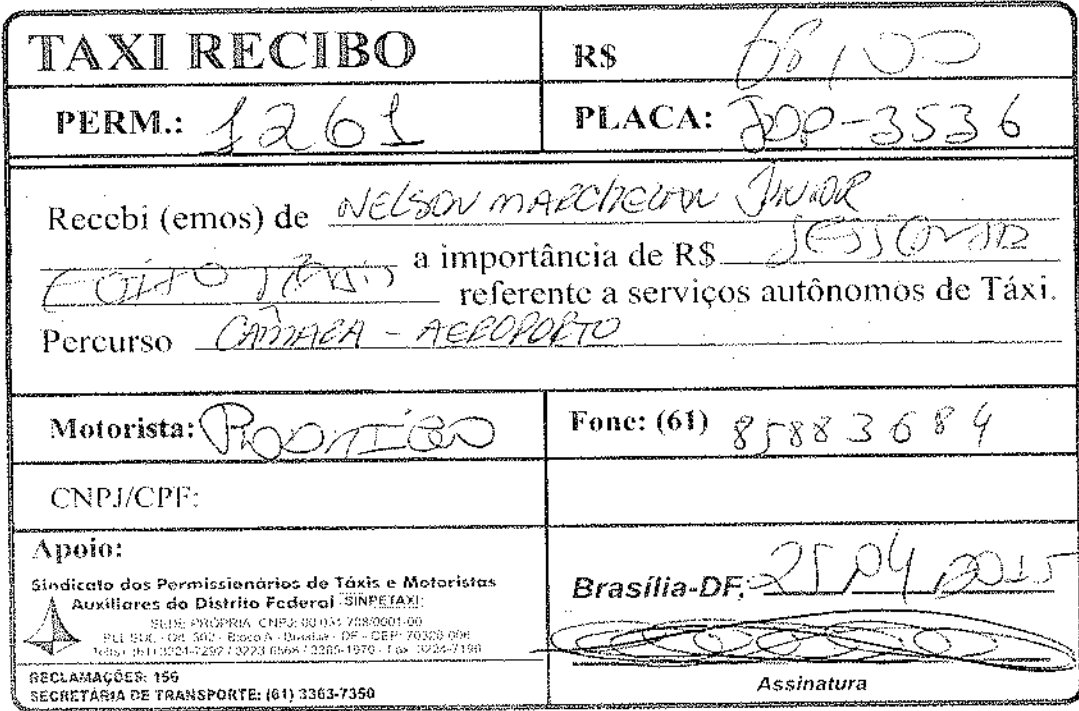 TAXI RECIBO
R$ 68,00
PERM.: 1261
PLACA: JDP-3536
Recebi (emos) de NELSON MARCHEZAN JUNIOR
a importância de R$ SESSENTA
E OITO REAIS referente a serviços autônomos de Táxi.
Percurso CÂMARA - AEROPORTO
Motorista: RODRIGO
Fone: (61) 85883684
CNPJ/CPF:
Apoio:
Sindicato dos Permissionários de Táxis e Motoristas
Auxiliares do Distrito Federal - SINPETAXI:
SEDE PRÓPRIA CNPJ: 00.031.708/0001-00
Bloco A - Brasília - DF - CEP: 70320-006
RECLAMAÇÕES: 156
SECRETÁRIA DE TRANSPORTE: (61) 3363-7350
Brasília-DF, 25/04/2015
Assinatura